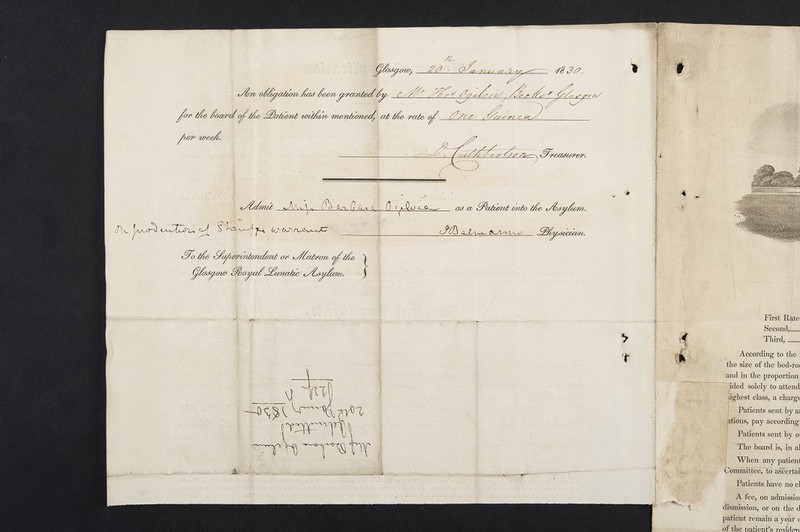 Glasgow, 20th January 1830.
An obligation has been granted by Mr Thos Ogilvie Glasgow
for the board of the Patient within mentioned, at the rate of One Guinea
per week.
Cuthbertson Treasurer.
Admit Miss Barbara Ogilvie as a Patient into the Asylum.
On production of Sheriffs warrant
J Balmanno Physician.
To the Superintendent or Matron of the
Glasgow Royal Lunatic Asylum.
Miss Barbara Ogilvie
Admitted
20th January 1830
First Rate
Second,
Third,
According to the
the size of the
and in the proportion
solely to attend
class, a
Patients sent by
pay according
Patients sent by
The board is, in
When any
Committee, to
Patients have no
A fee, on
dismission, or on the
patient remain a year
of the patient's